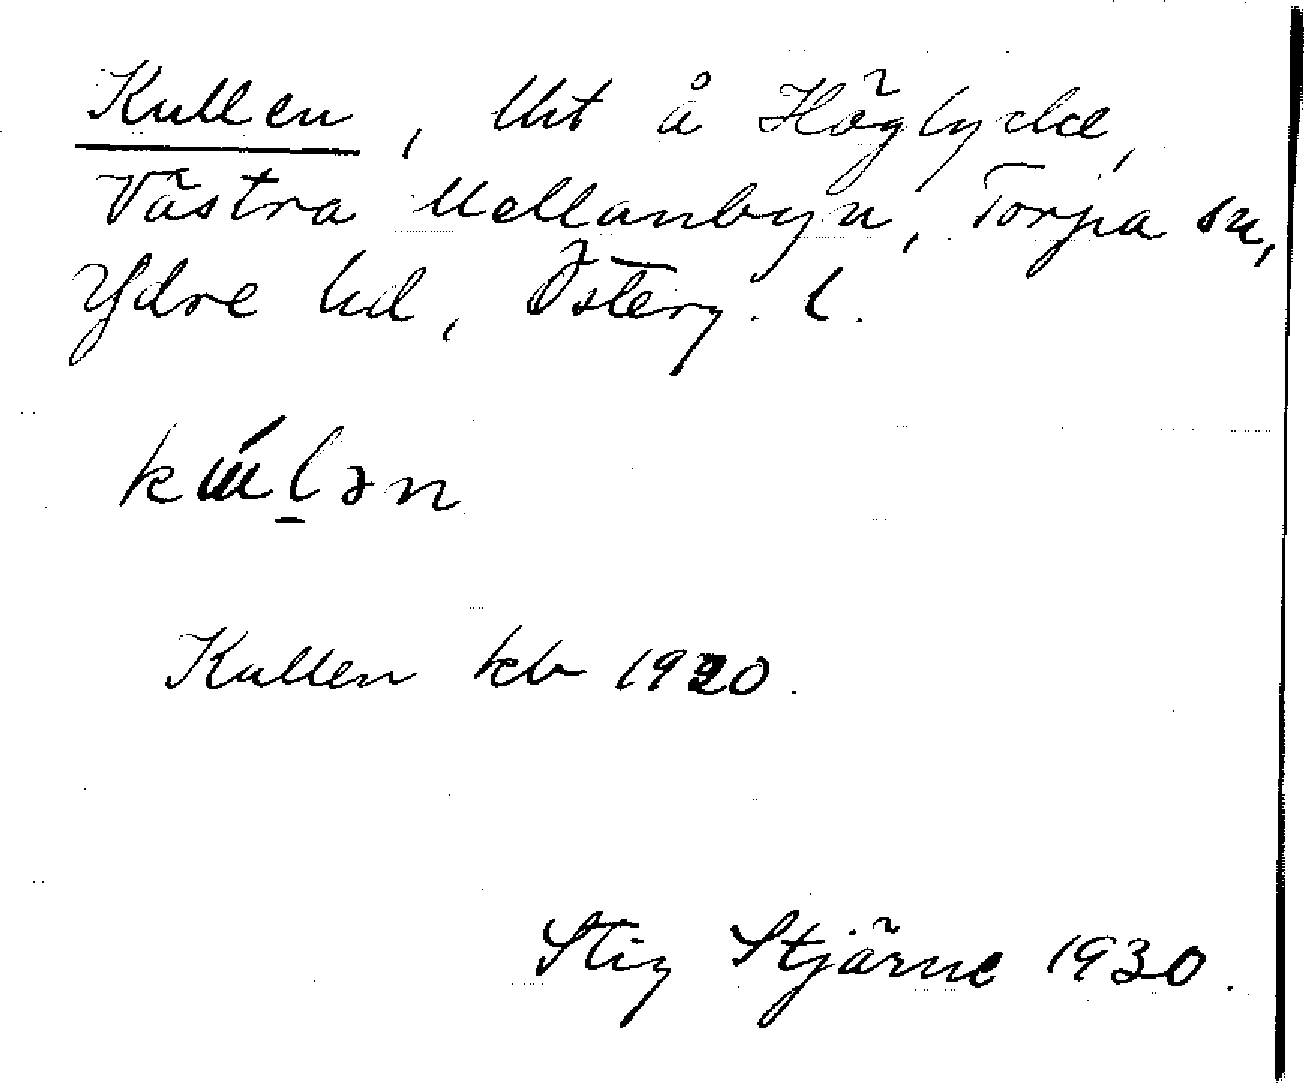 Kullen, lht å Höglycke,
Västra Mellanbyn, Torpa sn,
Ydre hd, Österg. l.
kúlən
Kullen kb 1920.
Stig Stjärne 1930.